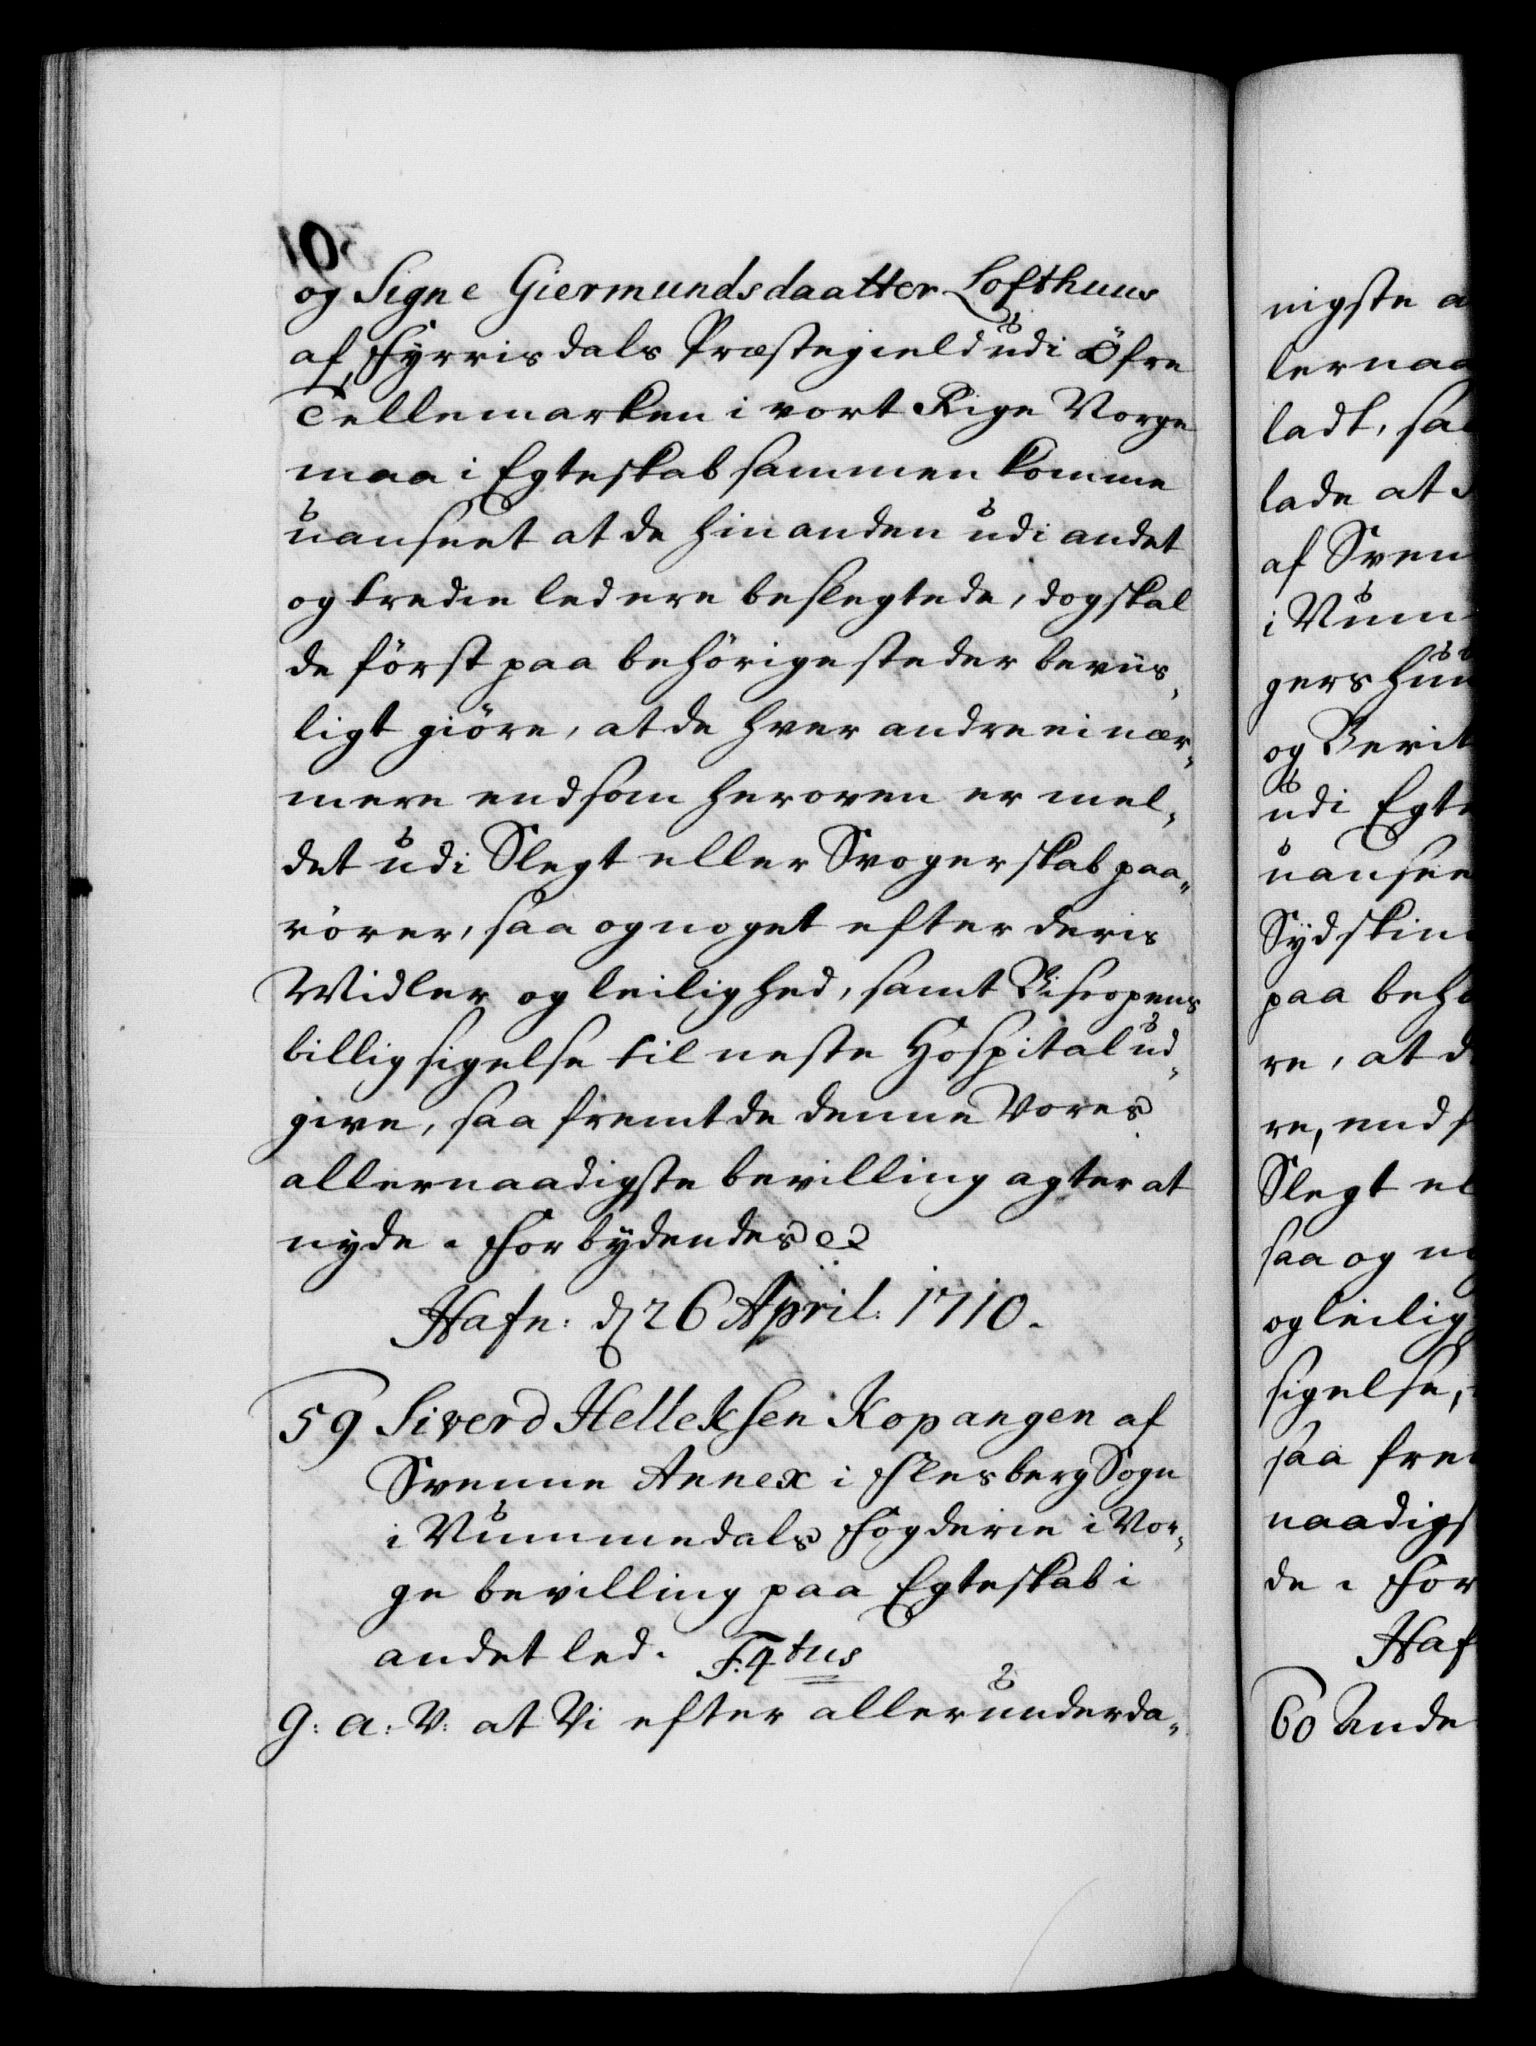 og Signe Giermundsdaatter Lofthuus
af Fyrrisdals Præstegield udi Öfre
Tellemarken i vort Rige Norge
maa i Egteskab sammen komme
uanseet at de hinanden udi andet
og tredie led ere beslegtede, dog skal
de först paa behörige steder beviis,
ligt giöre, at de hver andre ei nær,
mere end som heroven er mel,
det udi Slegt eller Svogerskab paa,
rörer, saa og noget efter deris
Midler og leilighed, samt Biscopens
billigsigelse til neste Hospital ud,
give, saa fremt de denne Vores
allernaadigste bevilling agter at
nyde. Forbydendes
Hafn: d 26 April: 1710.
59 Siverd Helleksen Kopangen af
Svenne Annex i Flesberg Sogn
i Nummedals Fogderie i Nor,
ge bevilling paa Egteskab i
andet led.
G: A: V: at Vi efter allerunderda,
nigste a
lernaa
ladt, saa
lade at
af Sven
i Num
gers hu
og Berit
udi Egte
uansee
Sydskin
paa behö
re, at d
re, end s
Slegt el
saa og no
og leilig
sigelse,
saa frem
naadigs
de. For
Haf
60 Ande